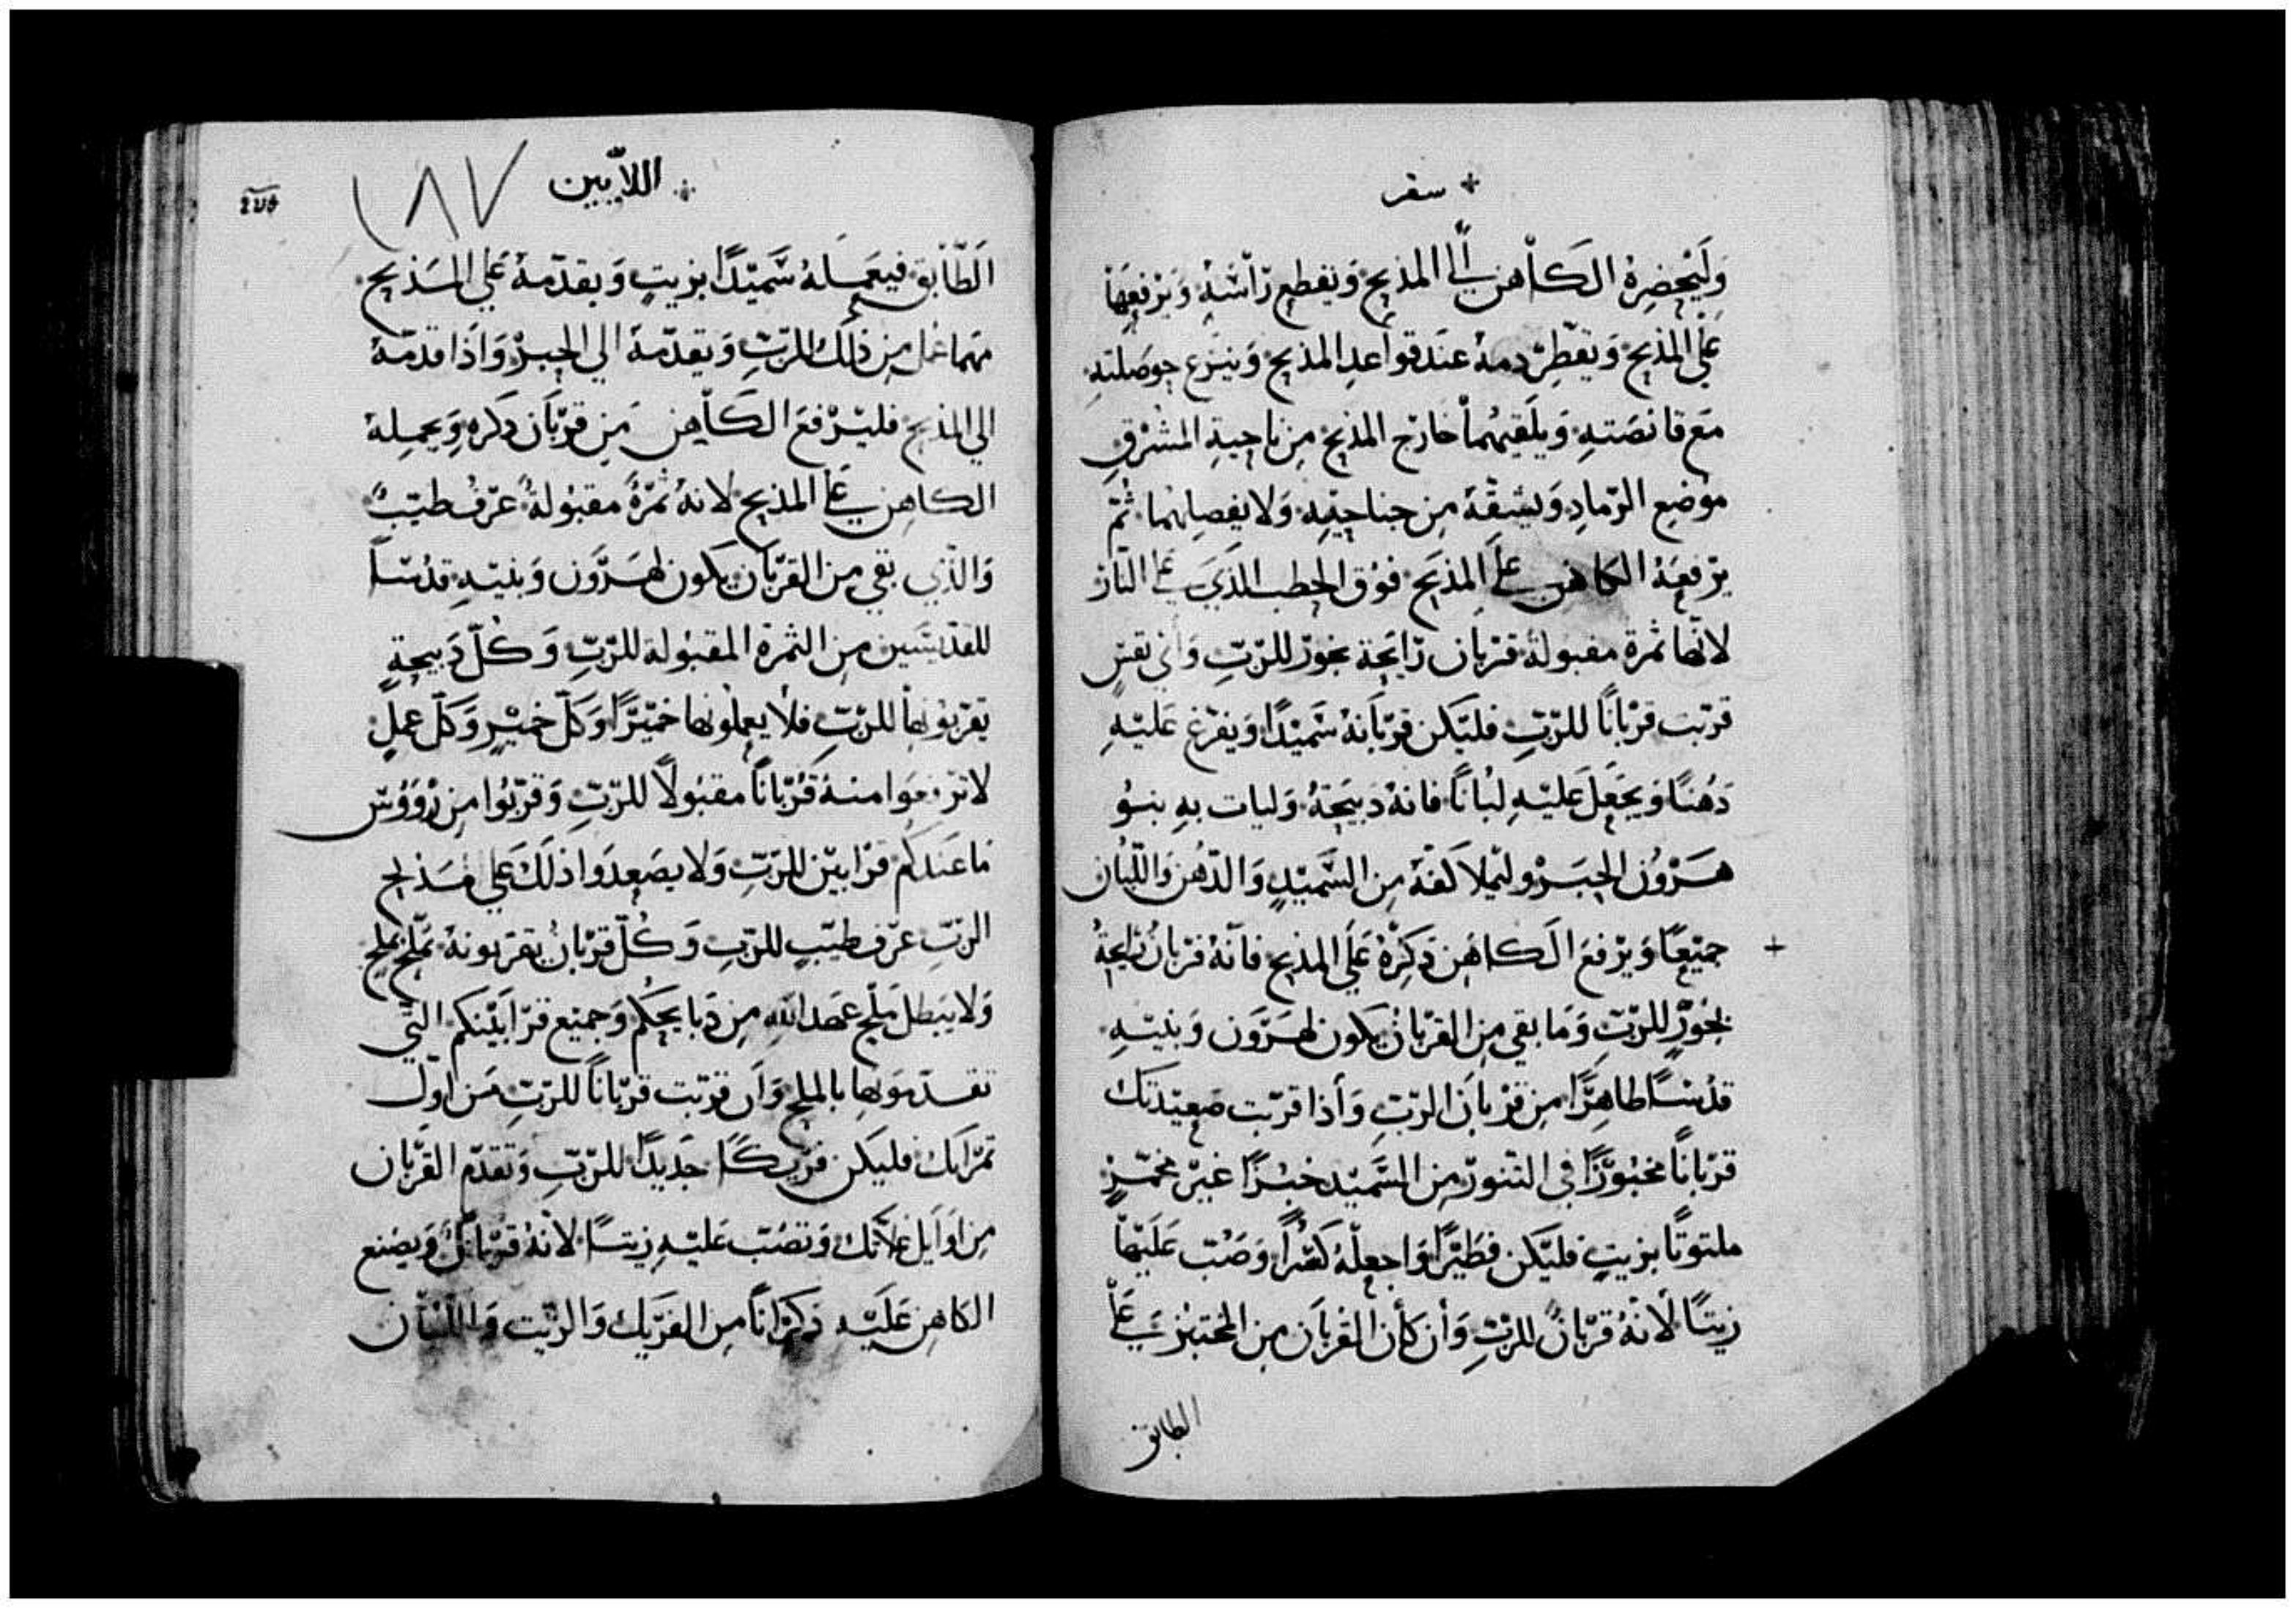 سفر
وَلَيُحْضِرهُ الكَاهن الى المذبح وَيقطع رَاسَهُ وَيَرْفعهَا
عَلي المذبح وَيقطّر دمهُ عندَ قواعد المذبح وَينزع حوصلته
مَع قانصَتهِ وَيلقيهُما خارج المذبح مِن ناحِيةِ المشرق
موْضع الرّمادِ وَيشقّهُ مِن جناحيْهِ وَلا يفصلهُما ثُمّ
يرْفعهُ الكاهن على المذبَح فوْق الحطب الّذي على النّار
لانّها ثمرة مقبولة قرْبان رَايَحة بخور للرّبّ وَاي نفسٍ
قرّبت قرْباناً للرّبّ فليَكن قرْبَانهُ سَميْدًا وَيفرْغ عَليْهِ
دَهُنًا وَيجعَل عَليْهِ لبُاناً فانهُ دَبيحَة وَليات بهِ بنوُ
هَرْوُن الحبَر وليملا كفّهُ مِن السَّميْدِ وَالدّهُن وَاللّبان
جميْعًا وَيرْفع الَكاهَن ذكرِهُ عَلَي المذبح فانّهُ قرْبان رَايحةُ
بخوُرٍ للرّبّ وَمَا بقي مِن القرْبان يَكون لهَرَوَن وَبنيْهِ
قدُسًا طاهِرًا مِن قرْبانَ الرّبِّ وَأذا قرّبت صَعِيْدَتك
قرْباناً مخبُوزًا في التّنور مِن السَّميْد خبْزًا غيْر مخمّرٍ
ملتوتًا بزيتٍ فليَكن فطيْرًا وَاجعلهُ كسْرًا وَصُبّ عَليْهَا
زيتًا لانّهُ قرْبانٌ للرّبّ وَأن كأن القربَان مِن المختبز عَلى
الطابق
اللاّبيين
١٨٧
الَطّابق فيعَملهُ سَّميْدًا بزيتٍ وَيقدّمهُ عَلي المذبح
مهَما عُمل مِن ذلَك للرَبّ وَيقدّمهُ الي الحِبرْ وَاَذا قدمّهُ
الي المذبح فليرْفعَ الكَاهِن مَن قرْبَان ذكرهِ وَيحمِلهُ
الكاهِن على المذبح لانهُ ثمْرَةً مقبُولةً عرْفُ طيّبٌ
وَالذّي بقي مِن القرْبَان يكون لهَرَوَن وَبنيْهِ قدُسًا
للقدّيسَين مِن الثمرَة المقبُولة للرّبّ وَكُلّ دَبيحةٍ
يقرّبوُنها للرّبّ فلا يعملوُنها خميْرًا وَكلّ خميْرٍ وَكلّ عملٍ
لا ترْفعوَا منهُ قرُبْاناً مقبُولاً للرّبّ وَقرّبوُا مِن رُوَوُس
مَا عندَكم قرَابيْن للرّبّ وَلا يصَعدَوا ذلكَ عَلي مَذبح
الرّبّ عرْف طيّبٍ للرّبّ وَكُلّ قرْبانٌ يقرّبونهُ يملّح بملح
وَلا يَبطل ملْح عهَد الله مِن دَبايحكم وَجميْع قرَابَيْنكم التَّي
تقدّموَنها بالملح وَاَن قرّبت قرْباناً للرّبّ مَن اوَل
ثمرَاتك فليَكن فرْيكاً جَديدًا للرّبّ وَتقدّم القرْبان
مِن اوَايل غلاّتك وَتصُبّ عَليْهِ زيتًا لانّهُ قرْبانٌ وَيصْنع
الكاهِن عَليَهِ ذكرَانًا مِن الفرَيك وَالزّيت وَاللّبان